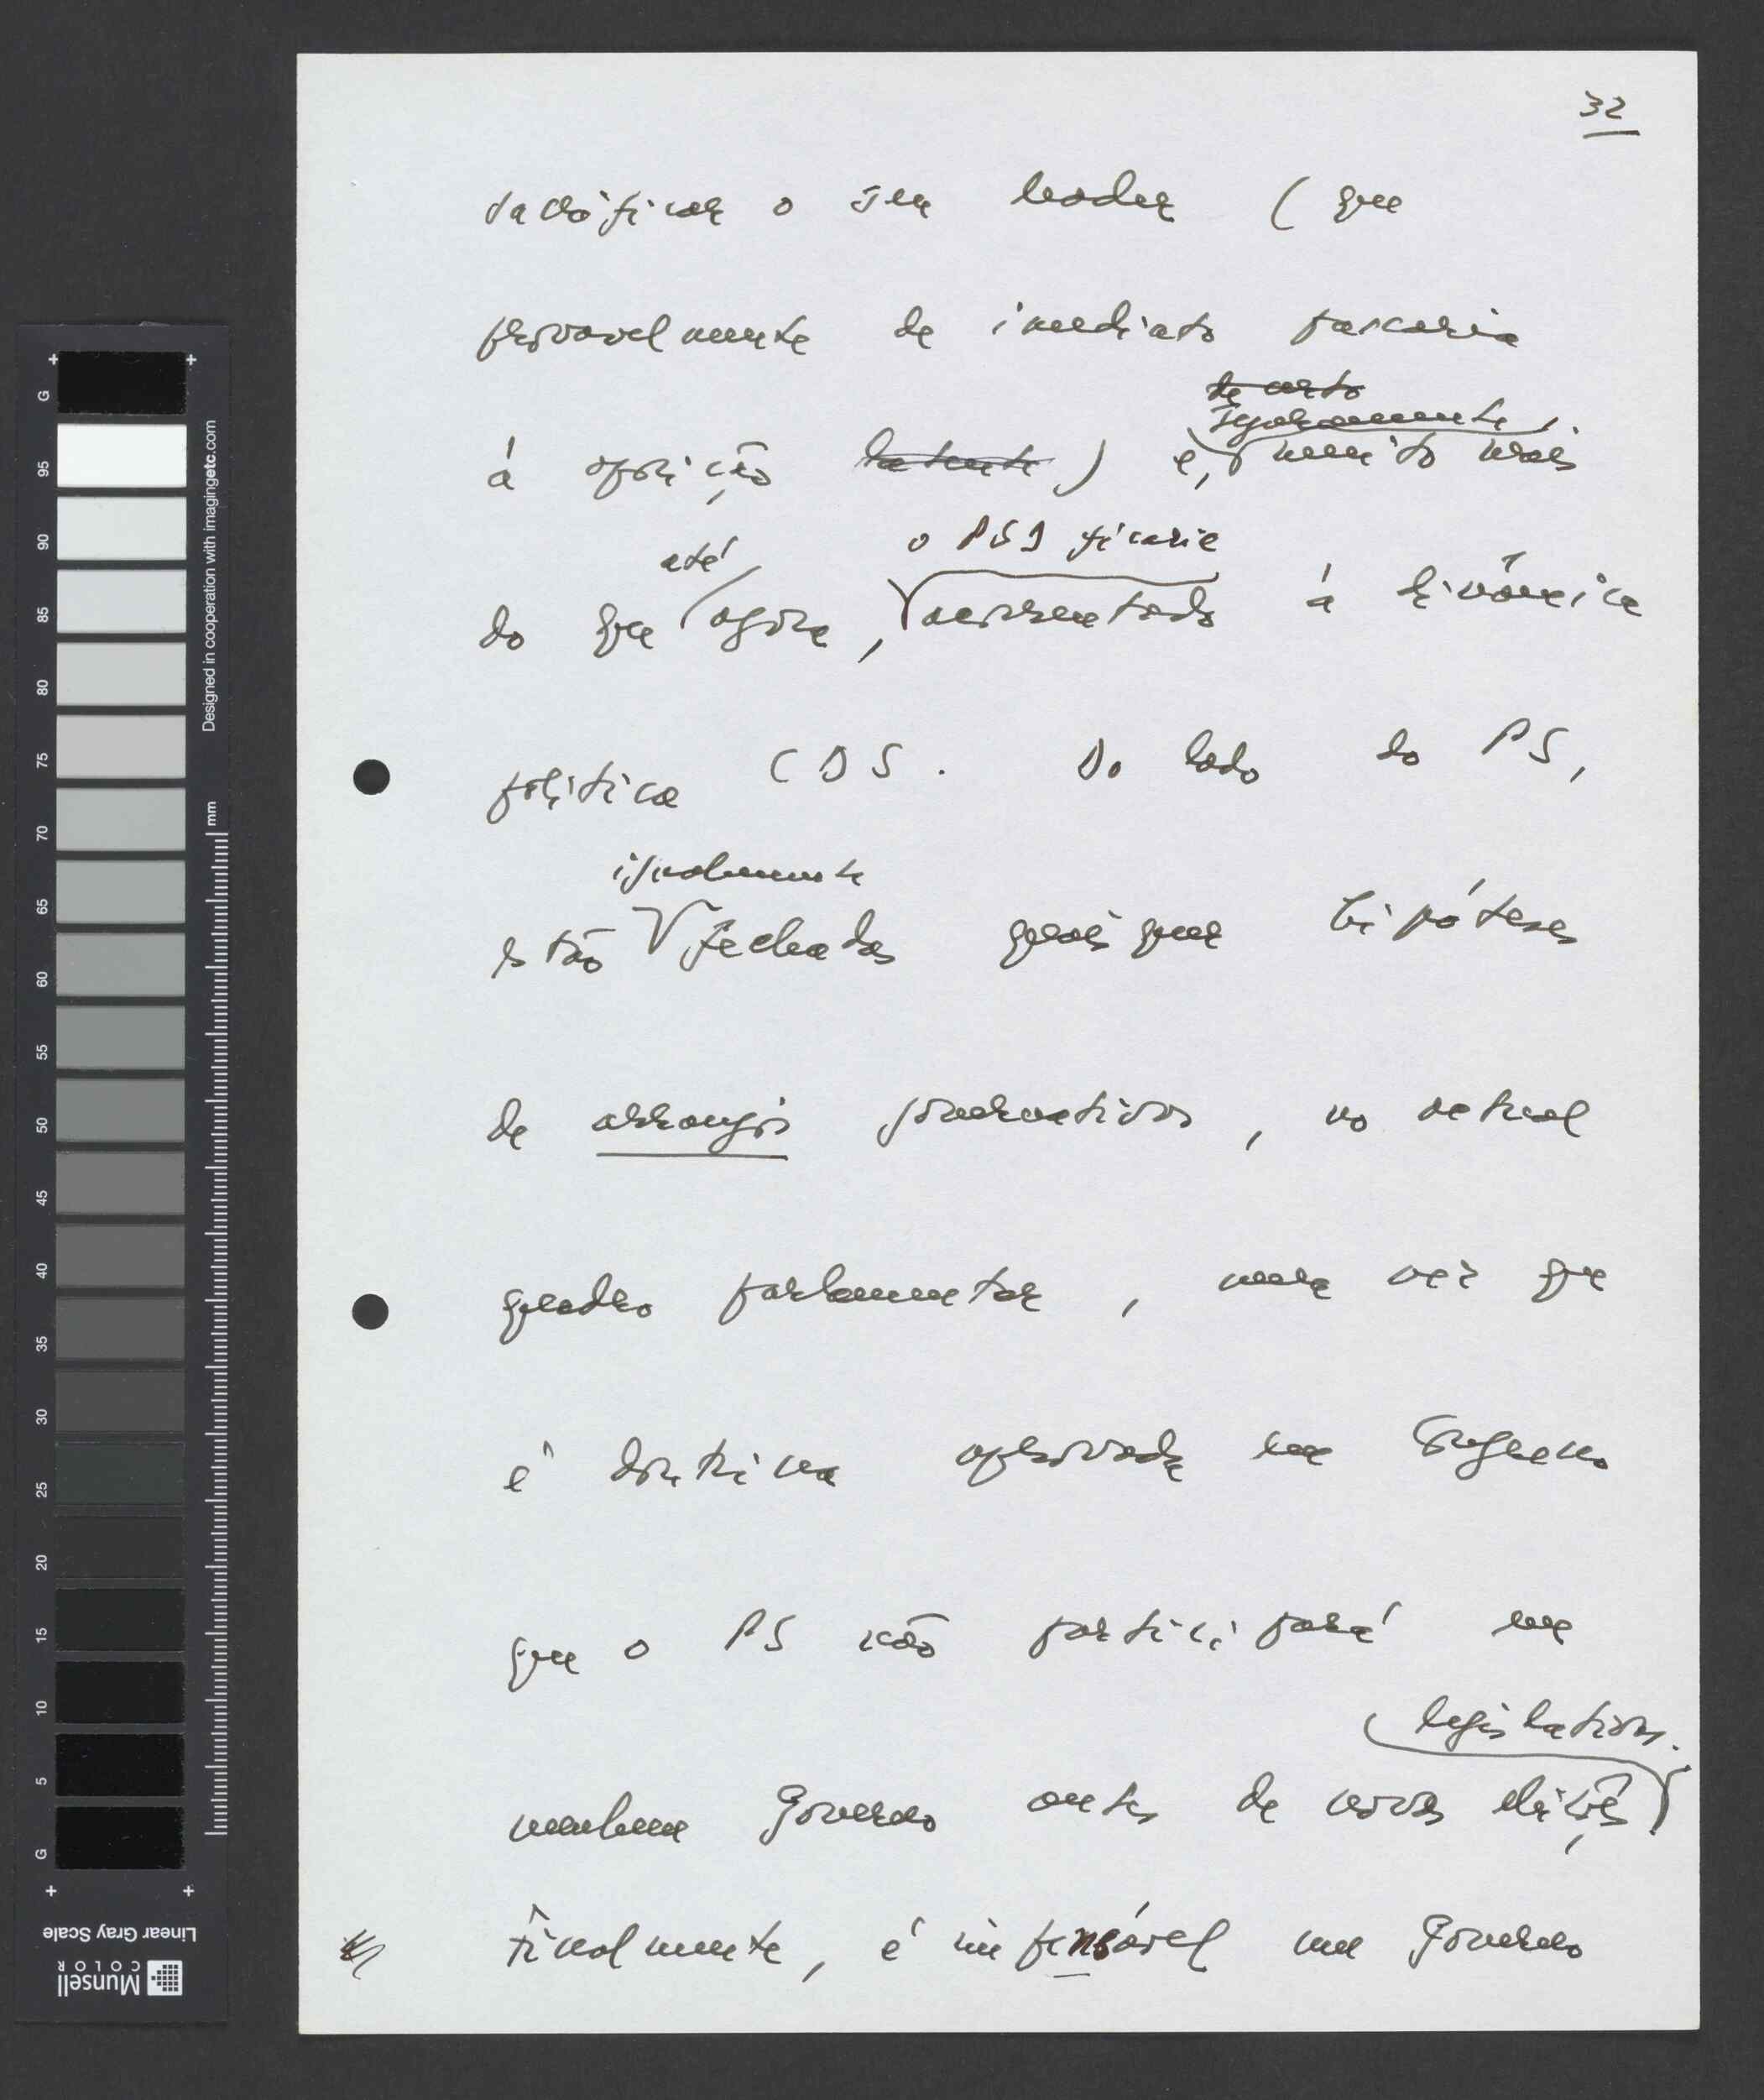 32
sacrificar o seu leader (que
provavelmente de imediato passaria
de certo
seguramente,
à oposição latente) e, muito mais
até
o PSD ficaria
do que agora, acorrentado à dinâmica
política CDS. Do lado do PS,
igualmente
estão fechadas quaisquer hipóteses
de arranjos governativos, no actual
quadro parlamentar, uma vez que
é doutrina aprovada em Congresso
que o PS não participará em
legislativas.
nenhum Governo antes de novas eleições
Finalmente, é impensável um Governo
G
95
90
85
80
75
70
65
60
55
50
45
40
35
30
25
20
15
10
5
G
mm
Designed in cooperation with imagingetc.com
Linear Gray Scale
Munsell
COLOR